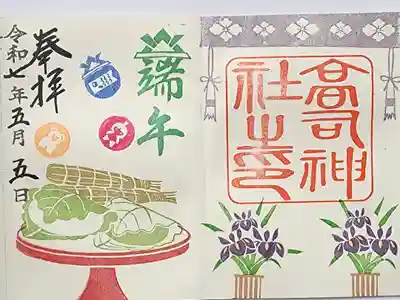 高司神
社之印
端午
奉拝
令和七年五月五日